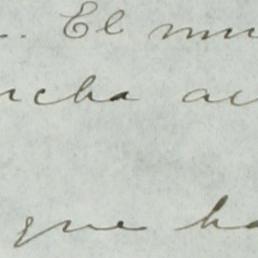 .. El mu
ncha ac
que ha